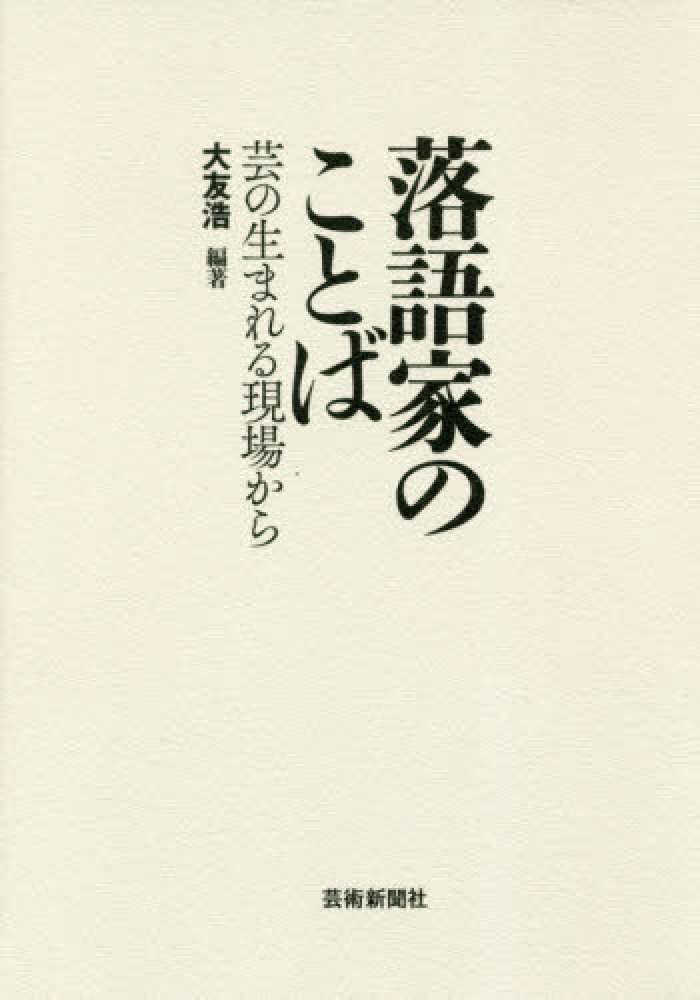 落語家の
ことば
芸の生まれる現場から
大友浩 編著
芸術新聞社